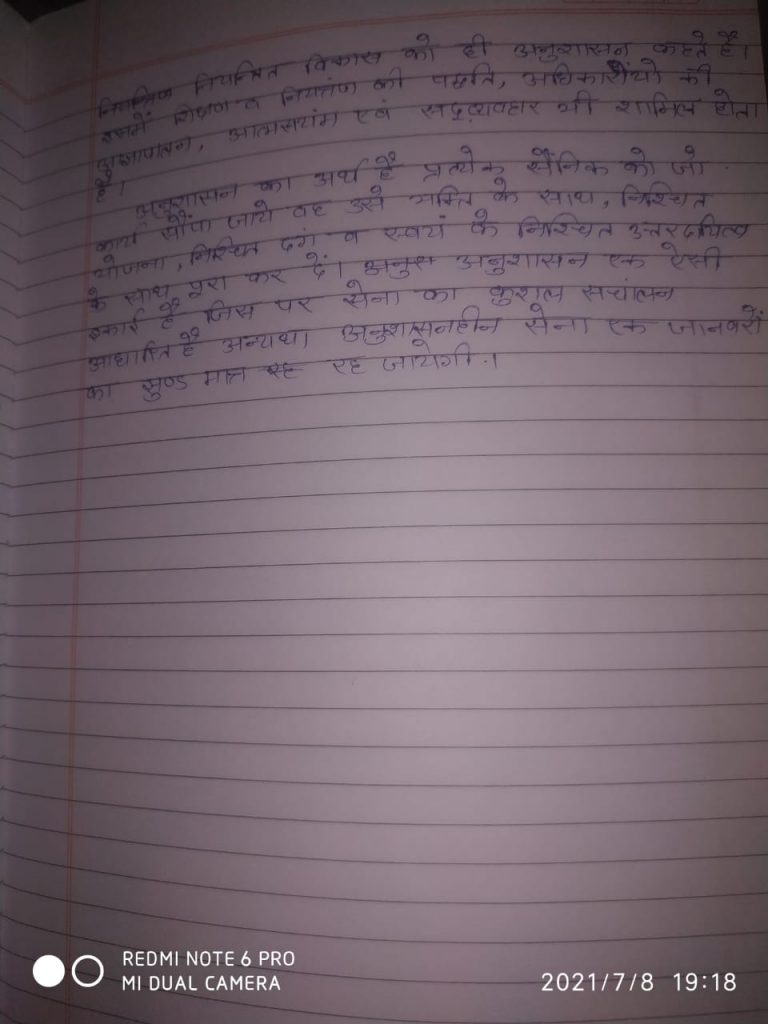 नियन्त्रित विकास को ही अनुशासन कहते है।
इसमें शिक्षण व नियंत्रण की पद्धति, अधिकारियों की
आज्ञापालन, आत्मसयंम एवं सद्व्यवहार भी शामिल होता
है।
अनुशासन का अर्थ है प्रत्येक सैनिक को जो
कार्य सौंपा जाये वह उसे भक्ति के साथ, निश्चित
योजना, निश्चित ढगं व स्वयं के निश्चित उत्तरदायित्व
के साथ पूरा कर दें। अनुस अनुशासन एक ऐसी
इकाई है जिस पर सेना का कुशल सचांलन
आधारित है अन्यथा अनुशासनहीन सेना एक जानवरों
का झुण्ड मात्र रह जायेगी।
REDMI NOTE 6 PRO
MI DUAL CAMERA
2021/7/8 19:18